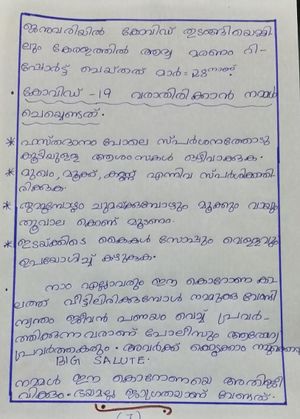 ജനുവരിയിൽ കോവിഡ് തുടങ്ങിയെങ്കി
ലും കേരളത്തിൽ ആദ്യ മരണം റി-
പ്പോർട്ട് ചെയ്തത് മാർച്ച് 28 നാണ്.
കോവിഡ് -19 വരാതിരിക്കാൻ നമ്മൾ
ചെയ്യേണ്ടത്.
* ഹസ്തദാനം പോലെ സ്പർശനത്തോടു
കൂടിയുള്ള ആശംസകൾ ഒഴിവാക്കുക.
* മുഖം, മൂക്ക്, കണ്ണ് എന്നിവ സ്പർശിക്കാതി
രിക്കുക.
* തുമ്മുമ്പോഴും ചുമയ്ക്കുമ്പോഴും മൂക്കും വായും
തൂവാല കൊണ്ട് മൂടണം.
* ഇടയ്ക്കിടെ കൈകൾ സോപ്പും വെള്ളവും
ഉപയോഗിച്ച് കഴുകുക.
നാം എല്ലാവരും ഈ കൊറോണ കാ
ലത്ത് വീട്ടിലിരിക്കുമ്പോൾ നമുക്കു വേണ്ടി
സ്വന്തം ജീവൻ പണയം വെച്ച് പ്രവർ-
ത്തിക്കുന്നവരാണ് പോലീസും ആരോഗ്യ
പ്രവർത്തകരും. അവർക്ക് കൊടുക്കാം നമുക്കൊരു
BIG SALUTE.
നമ്മൾ ഈ കൊറോണയെ അതിജീ
വിക്കും. ഭയമല്ല ജാഗ്രതയാണ് വേണ്ടത്.